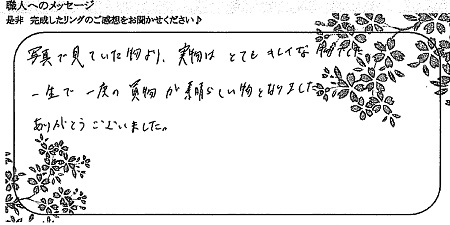 職人へのメッセージ
是非 完成したリングのご感想をお聞かせください♪
写真で見ていた物より、実物は とても キレイな 物でした
一生で 一度の 買物 が 素晴らしい物となりました。
ありがとうございました。